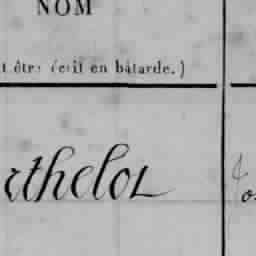 NOM
t être écrit en bâtarde.)
rthelot